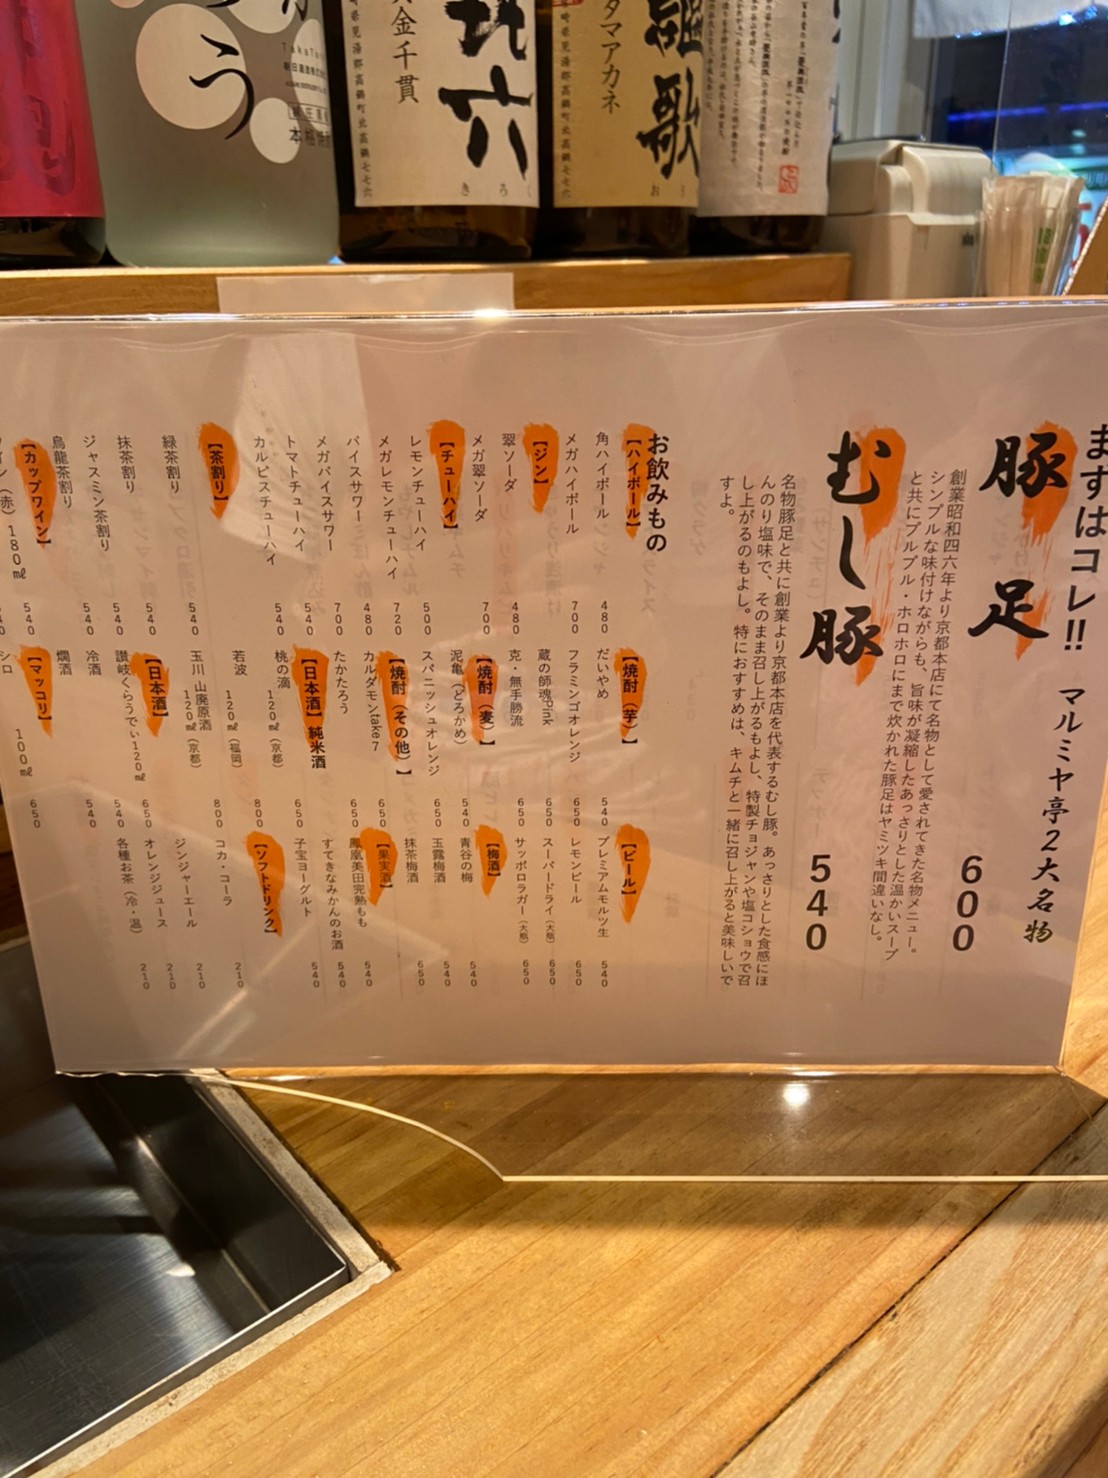 黄金千貫
㐂六
きろく
宮崎県児湯郡高鍋町北高鍋七七六
タマアカネ
まずはコレ!! マルミヤ亭2大名物
豚足
600
創業昭和四六年より京都本店にて名物として愛されてきた名物メニュー。
シンプルな味付けながらも、旨味が凝縮したあっさりとした温かいスープ
と共にプルプル・ホロホロにまで炊かれた豚足はヤミツキ間違いなし。
むし豚
540
名物豚足と共に創業より京都本店を代表するむし豚。あっさりとした食感にほ
んのり塩味で、そのまま召し上がるもよし、特製チョジャンや塩コショウで召
し上がるのもよし。特におすすめは、キムチと一緒に召し上がると美味しいで
すよ。
お飲みもの
【ハイボール】
角ハイボール 480
メガハイボール 700
【ジン】
翠ソーダ 480
メガ翠ソーダ 700
【チューハイ】
レモンチューハイ 500
メガレモンチューハイ 720
バイスサワー 480
メガバイスサワー 700
トマトチューハイ 540
カルピスチューハイ 540
【茶割り】
緑茶割り 540
抹茶割り 540
ジャスミン茶割り 540
烏龍茶割り 540
【カップワイン】
(赤) 180㎖ 540
【焼酎(芋)】
だいやめ 540
フラミンゴオレンジ 650
蔵の師魂Pink 650
克・無手勝流 650
【焼酎(麦)】
泥亀(どろかめ) 540
スパニッシュオレンジ 650
【焼酎(その他)】
カルダモンtake7 650
たかたろう 650
【日本酒】純米酒
桃の滴 120㎖(京都) 650
若波 120㎖(福岡) 800
玉川 山廃原酒 120㎖(京都) 800
【日本酒】
讃岐くらうでぃ120㎖ 650
冷酒 540
燗酒 540
【マッコリ】
シロ 100㎖ 650
【ビール】
プレミアムモルツ生 540
レモンビール 650
スーパードライ(大瓶) 650
サッポロラガー(大瓶) 650
【梅酒】
青谷の梅 540
玉露梅酒 540
抹茶梅酒 650
【果実酒】
鳳凰美田完熟もも 540
すてきなみかんのお酒 540
子宝ヨーグルト 540
【ソフトドリンク】
コカ・コーラ 210
ジンジャーエール 210
オレンジジュース 210
各種お茶(冷・温) 210